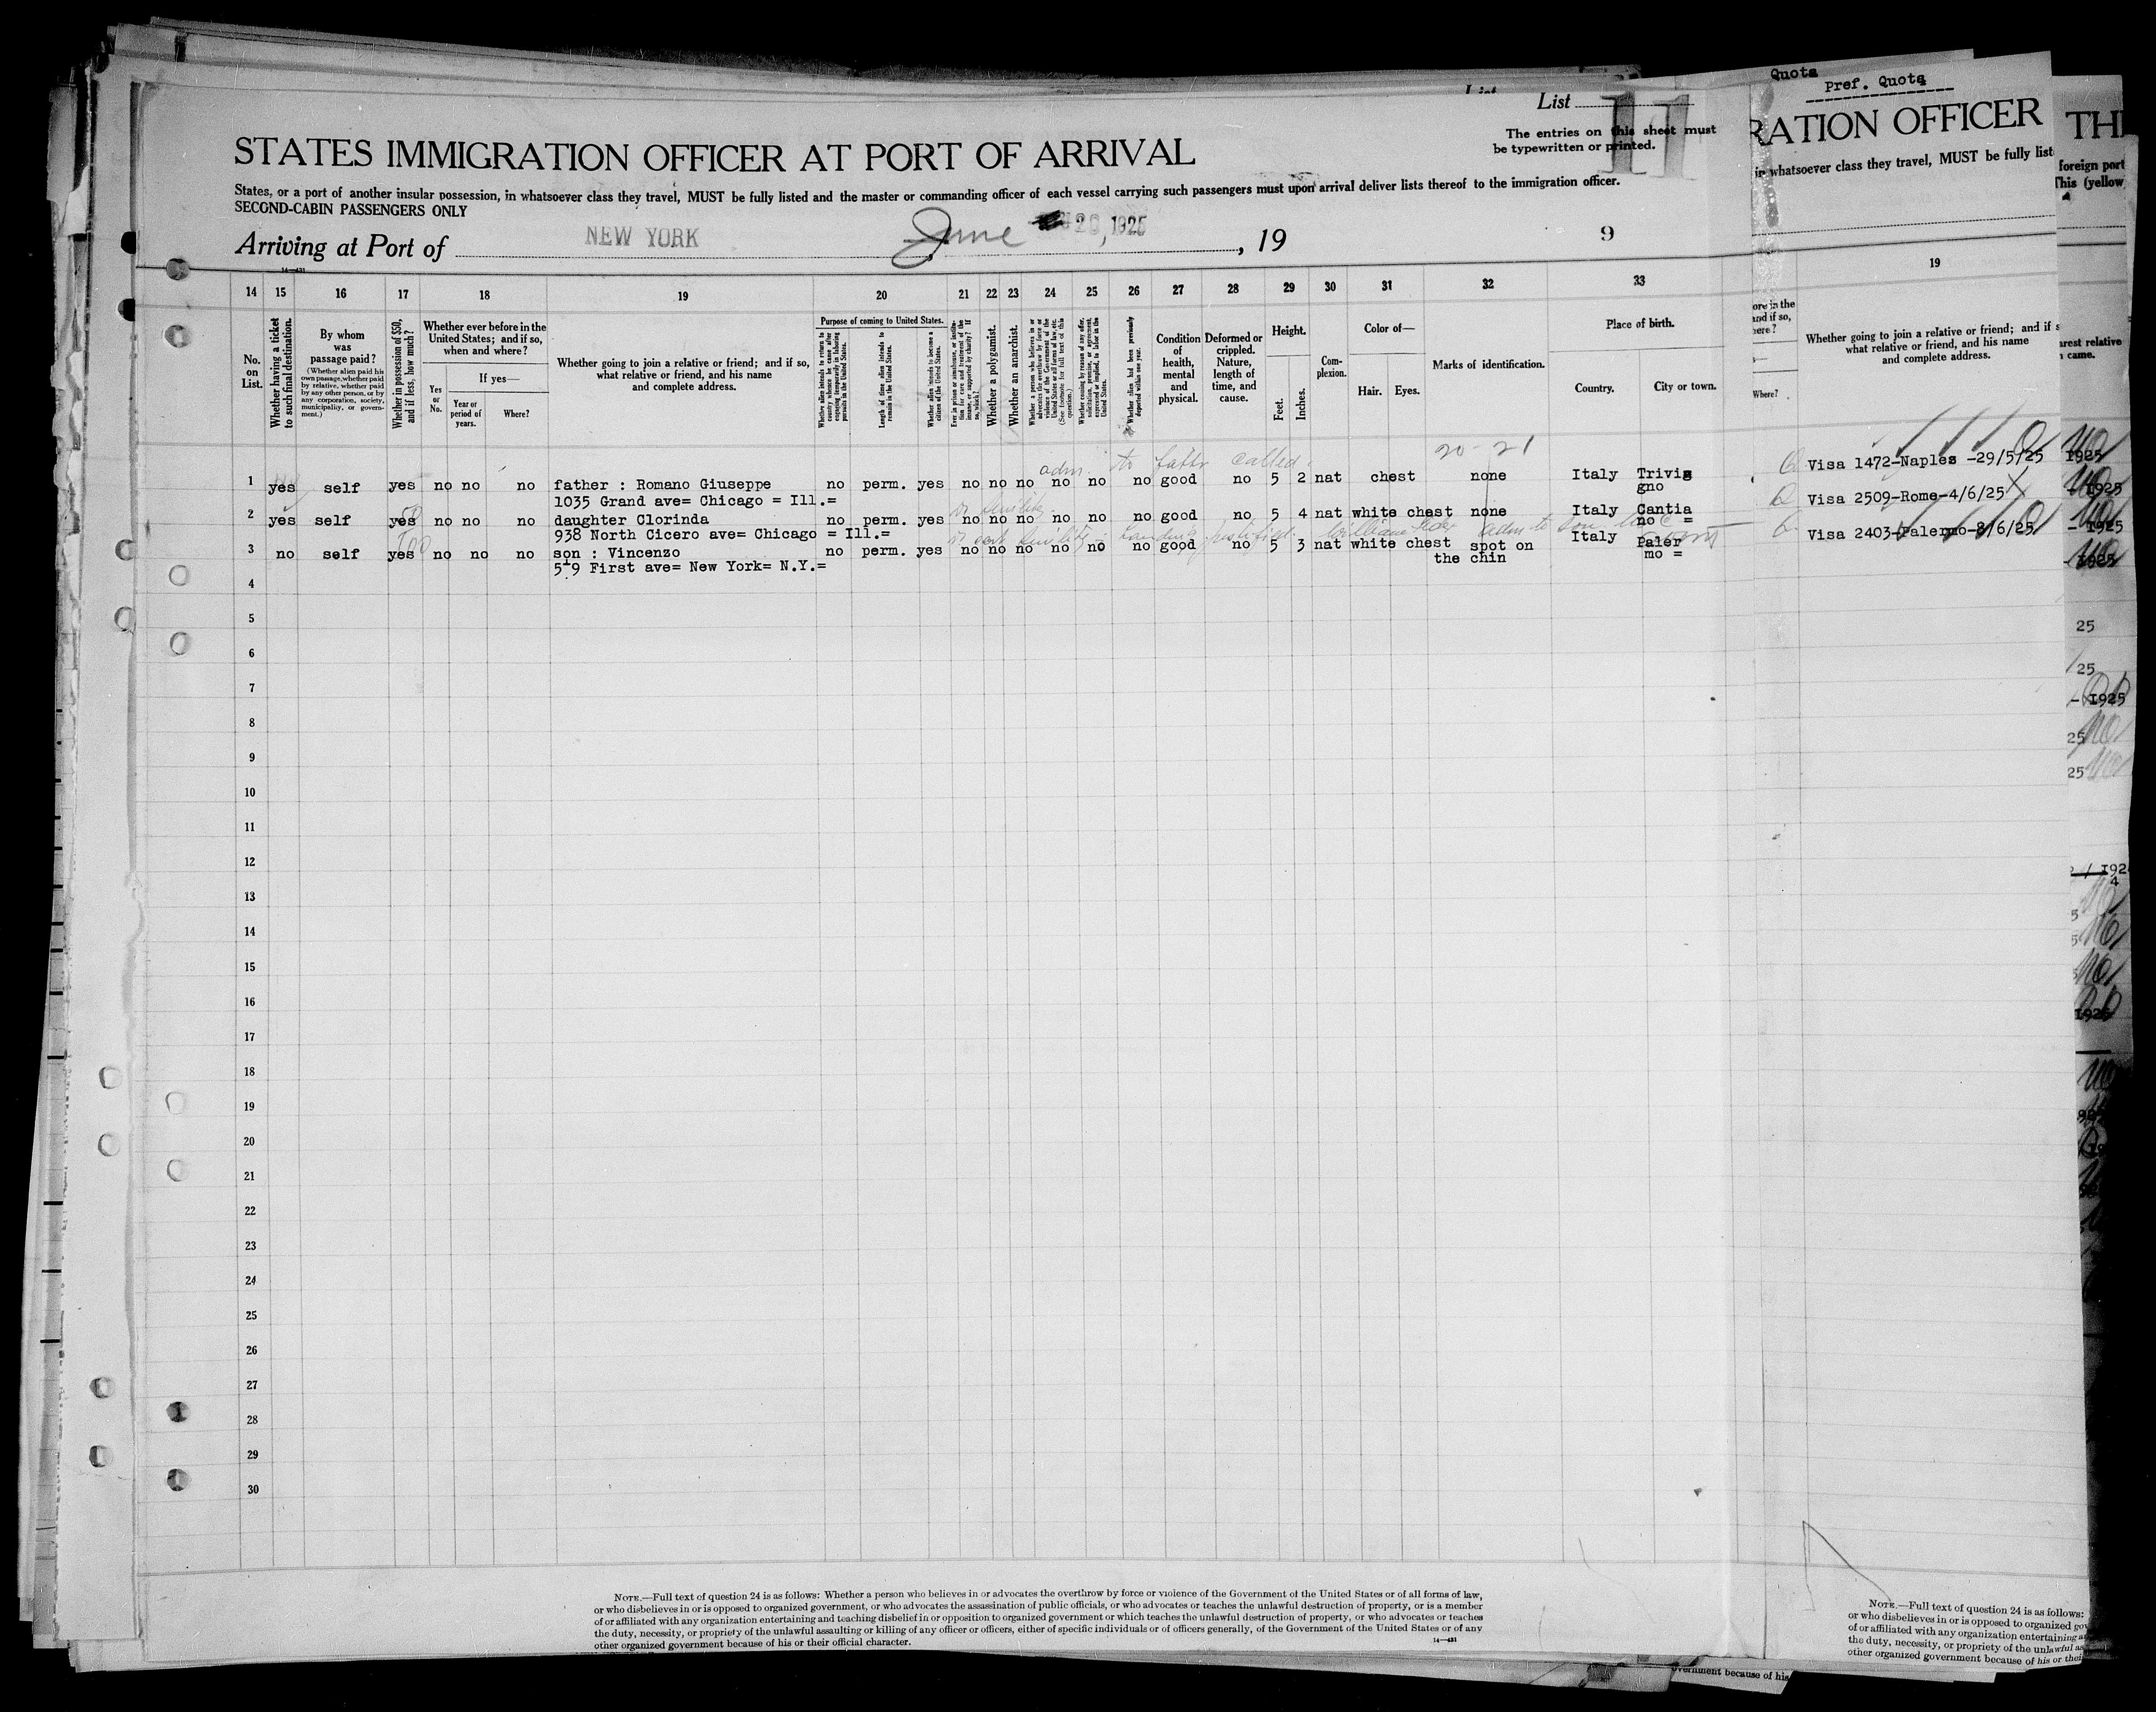 Quota
Pref. Quota
List 11
The entries on this sheet must
be typewritten or printed.
STATES IMMIGRATION OFFICER AT PORT OF ARRIVAL
RATION OFFICER
TH
States, or a port of another insular possession, in whatsoever class they travel, MUST be fully listed and the master or commanding officer of each vessel carrying such passengers must upon arrival deliver lists thereof to the immigration officer.
in whatsoever class they travel, MUST be fully list
foreign port
This (yellow
SECOND-CABIN PASSENGERS ONLY
Arriving at Port of NEW YORK, June 20, 1925, 19
9
14 15 16 17 18 19 20 21 22 23 24 25 26 27 28 29 30 31 32 33
19
No. on List.
Whether having a ticket to such final destination.
By whom was passage paid?
(Whether alien paid his own passage, whether paid by relative, whether paid by any other person, or by any corporation, society, municipality, or government.)
Whether in possession of $50, and if less, how much?
Whether ever before in the United States; and if so, when and where?
Yes or No.
If yes—
Year or period of years.
Where?
Whether going to join a relative or friend; and if so, what relative or friend, and his name and complete address.
Purpose of coming to United States.
Whether alien intends to return to country whence he came after engaging temporarily in laboring pursuits in the United States.
Length of time alien intends to remain in the United States.
Whether alien intends to become a citizen of the United States.
Whether a polygamist.
Whether an anarchist.
Whether alien had been previously deported within one year.
Condition of health, mental and physical.
Deformed or crippled. Nature, length of time, and cause.
Height.
Feet.
Inches.
Complexion.
Color of—
Hair. Eyes.
Marks of identification.
Place of birth.
Country. City or town.
Where?
Whether going to join a relative or friend; and if s
what relative or friend, and his name
and complete address.
arest relative
came.
20-21
adm. to father called
1 yes self yes no no no father : Romano Giuseppe no perm. yes no no no no no no good no 5 2 nat chest none Italy Trivig
1035 Grand ave= Chicago = Ill.= gno
Visa 1472-Naples -29/5/25 1925
2 yes self yes no no no daughter Clorinda no perm. yes no no no no no no good no 5 4 nat white chest none Italy Cantia
938 North Cicero ave= Chicago = Ill.= no =
Visa 2509-Rome-4/6/25 1925
3 no self yes no no no son : Vincenzo no perm. yes no no no no no no good no 5 3 nat white chest spot on Italy Paler
519 First ave= New York= N.Y.= the chin mo =
Visa 2403-Palermo-8/6/25 - 1925
1925
4
5
25
6
25
7
- 1925
8
25
9
25
10
11
12
13
14
15
16
17
18
19
20
21
22
23
24
25
26
27
28
29
30
NOTE.—Full text of question 24 is as follows: Whether a person who believes in or advocates the overthrow by force or violence of the Government of the United States or of all forms of law,
or who disbelieves in or is opposed to organized government, or who advocates the assassination of public officials, or who advocates or teaches the unlawful destruction of property, or is a member
of or affiliated with any organization entertaining and teaching disbelief in or opposition to organized government or which teaches the unlawful destruction of property, or who advocates or teaches
the duty, necessity, or propriety of the unlawful assaulting or killing of any officer or officers, either of specific individuals or of officers generally, of the Government of the United States or of any
other organized government because of his or their official character.
14—431
NOTE.—Full text of question 24 is as follows:
or who disbelieves in or is opposed to organized gov
of or affiliated with any organization entertaining a
the duty, necessity, or propriety of the unlawful as
other organized government because of his or thei
overnment because of his